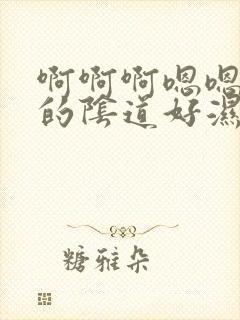 啊啊啊嗯嗯
的陰道好濕
糖雅朵